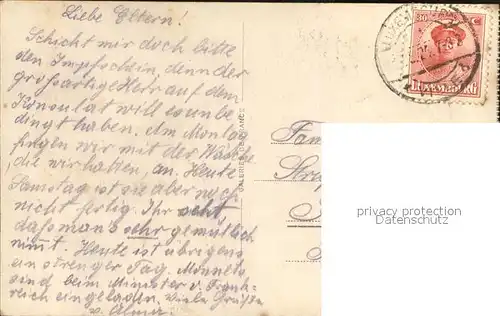 Liebe Eltern!
Schickt mir doch bitte
den Impfschein, denn der
großartige Herr auf dem
Konsulat will es unbe
dingt haben. Am Montag
fingen wir mit der Wäsche
die wir hatten, an. Heute
Samstag ist sie aber noch
nicht fertig. Ihr seht
dass mans sehr gemütlich
nimt. Heute ist übrigens
ein strenger Tag.
sind beim Minister v. Frank-
reich eingeladen. Viele Grüße
v. Alma.
GALERIES DE FRANCE
LUXEMBOURG
privacy protection
Datenschutz